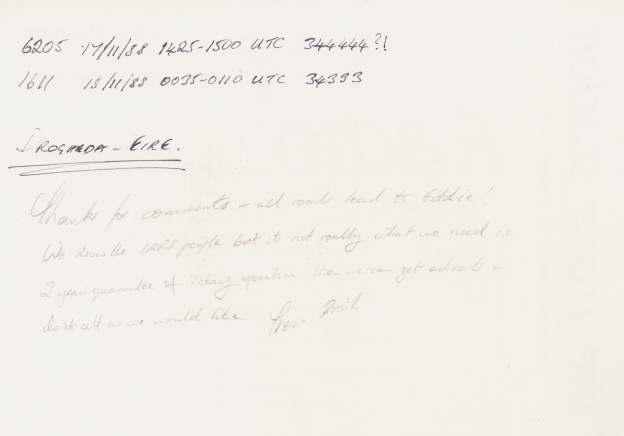 6205 17/11/88 1425-1500 UTC 344444?!
1611 18/11/88 0035-0110 UTC 34333
DROGHEDA - EIRE.
Thanks for comments - all roads lead to Eddie!
We know the IRRS people but it not really what we need is
2 year guarantee of 7 day operation then we can get adverts
do it all as we would like